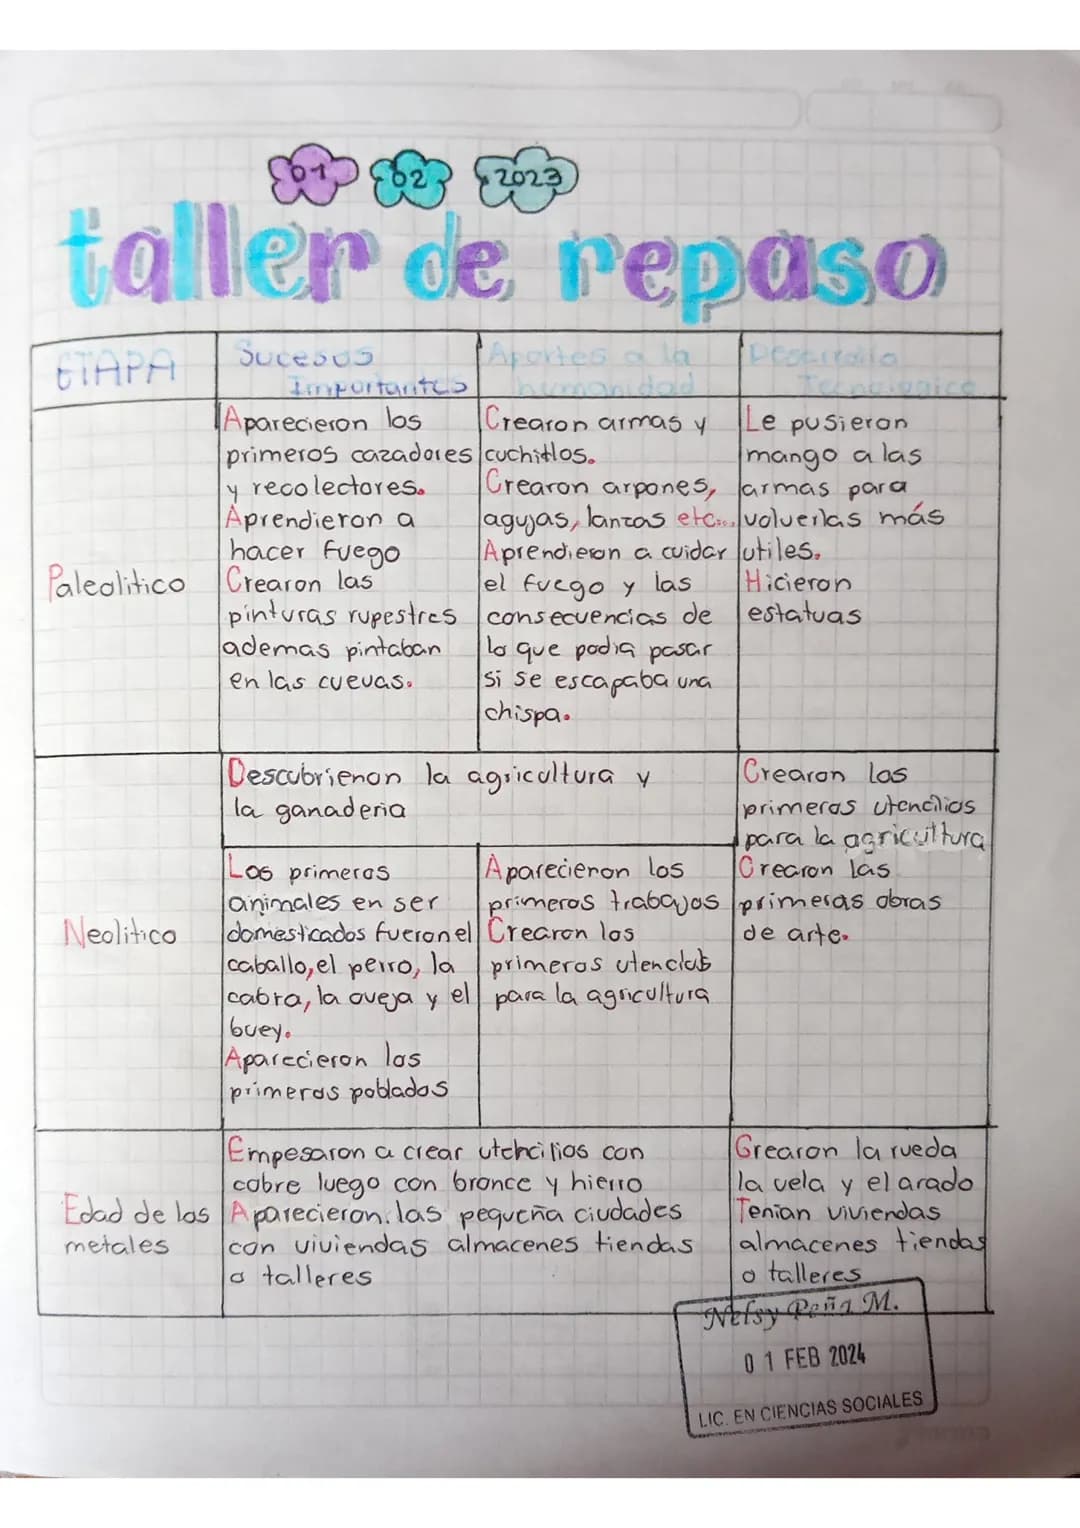 01 02 2023
taller de repaso
ETAPA
Sucesos
Importantes
Aportes a la
humanidad
Desarrollo
Tecnologico
Paleolitico
Aparecieron los
primeros cazadores
y recolectores.
Aprendieron a
hacer fuego
Crearon las
pinturas rupestres
ademas pintaban
en las cuevas.
Crearon armas y
cuchitlos.
Crearon arpones,
agujas, lanzas etc...
Aprendieron a cuidar
el fuego y las
consecuencias de
lo que podia pasar
si se escapaba una
chispa.
Le pusieron
mango a las
armas para
volverlas más
utiles.
Hicieron
estatuas
Neolitico
Descubrieron la agricultura y
la ganaderia
Los primeros
animales en ser
domesticados fueron el
caballo, el perro, la
cabra, la oveja y el
buey.
Aparecieron los
primeros poblados
Aparecieron los
primeros trabajos
Crearon los
primeros
para la agricultura
Crearon los
primeros utencilios
para la agricultura
Crearon las
primeras obras
de arte.
Edad de los
metales
Empesaron a crear utencilios con
cobre luego con bronce y hierro
Aparecieron. las pequeña ciudades
con viviendas almacenes tiendas
o talleres
Grearon la rueda
la vela y el arado
Tenian viviendas
almacenes tiendas
o talleres
Nelsy Peña M.
01 FEB 2024
LIC. EN CIENCIAS SOCIALES